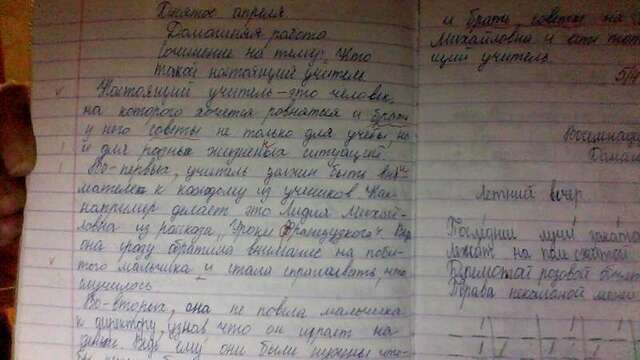 Десятое апреля
Домашняя работа
Сочинение на тему: "Кто
такой настоящий учитель
Настоящий учитель – это человек,
на которого хочется ровняться и брать
у него советы не только для учебы, но
и для разных жизненных ситуаций.
Во-первых, учитель должен быть вни-
мателен к каждому из учеников. Как
например делает это Лидия Михай-
ловна из рассказа „Уроки Французского". Ведь
она сразу обратила внимание на поби-
того мальчика и стала спрашивать, что
случилось
Во-вторых, она не повела мальчика
к директору, узнав что он играет на
деньги. Ведь ему они были нужны что-
и брать советы на
Михайловна и есть наст
щий учитель.
5/
Восемнадц
Домаш
Летний вечер
Последний луч заката
Лежат на поле сжатой
Дремотой розовой объята
Трава некошеной межи